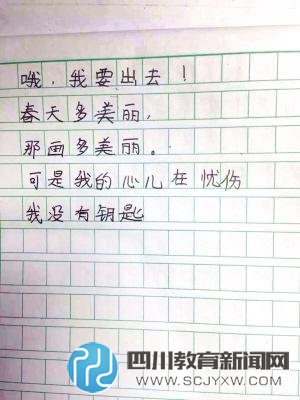 哦，我要出去！
春天多美丽，
那画多美丽。
可是我的心儿在忧伤
我没有钥匙
四川教育新闻网
WWW.SCJYXW.COM